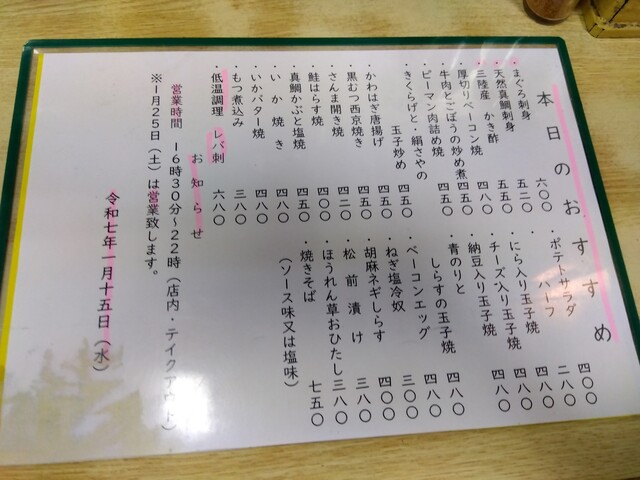 本日のおすすめ
・まぐろ刺身 六〇〇
・天然真鯛刺身 五二〇
・三陸産 かき酢 五五〇
・厚切りベーコン焼 四八〇
・牛肉とごぼうの炒め煮
・ピーマン肉詰め焼 四五〇
・きくらげと・絹さやの
玉子炒め 四五〇
・かわはぎ唐揚げ 四五〇
・黒むつ西京焼き 五四〇
・さんま開き焼 四二〇
・鮭はらす焼 四〇〇
・真鯛かぶと塩焼 四五〇
・いか焼き 四八〇
・いかバター焼 四八〇
・もつ煮込み 三八〇
・低温調理 レバ刺 六八〇
・ポテトサラダ 四〇〇
ハーフ 二八〇
・にら入り玉子焼 四八〇
・チーズ入り玉子焼 四八〇
・納豆入り玉子焼 四八〇
・青のりと
しらすの玉子焼 四八〇
・ベーコンエッグ 四八〇
・ねぎ塩冷奴 三〇〇
・胡麻ネギしらす 四〇〇
・松前漬け 三八〇
・ほうれん草おひたし 三八〇
・焼きそば 七五〇
(ソース味又は塩味)
お知らせ
営業時間 16時30分~22時(店内・テイクアウト)
※1月25日(土)は営業致します。
令和七年一月十五日(水)